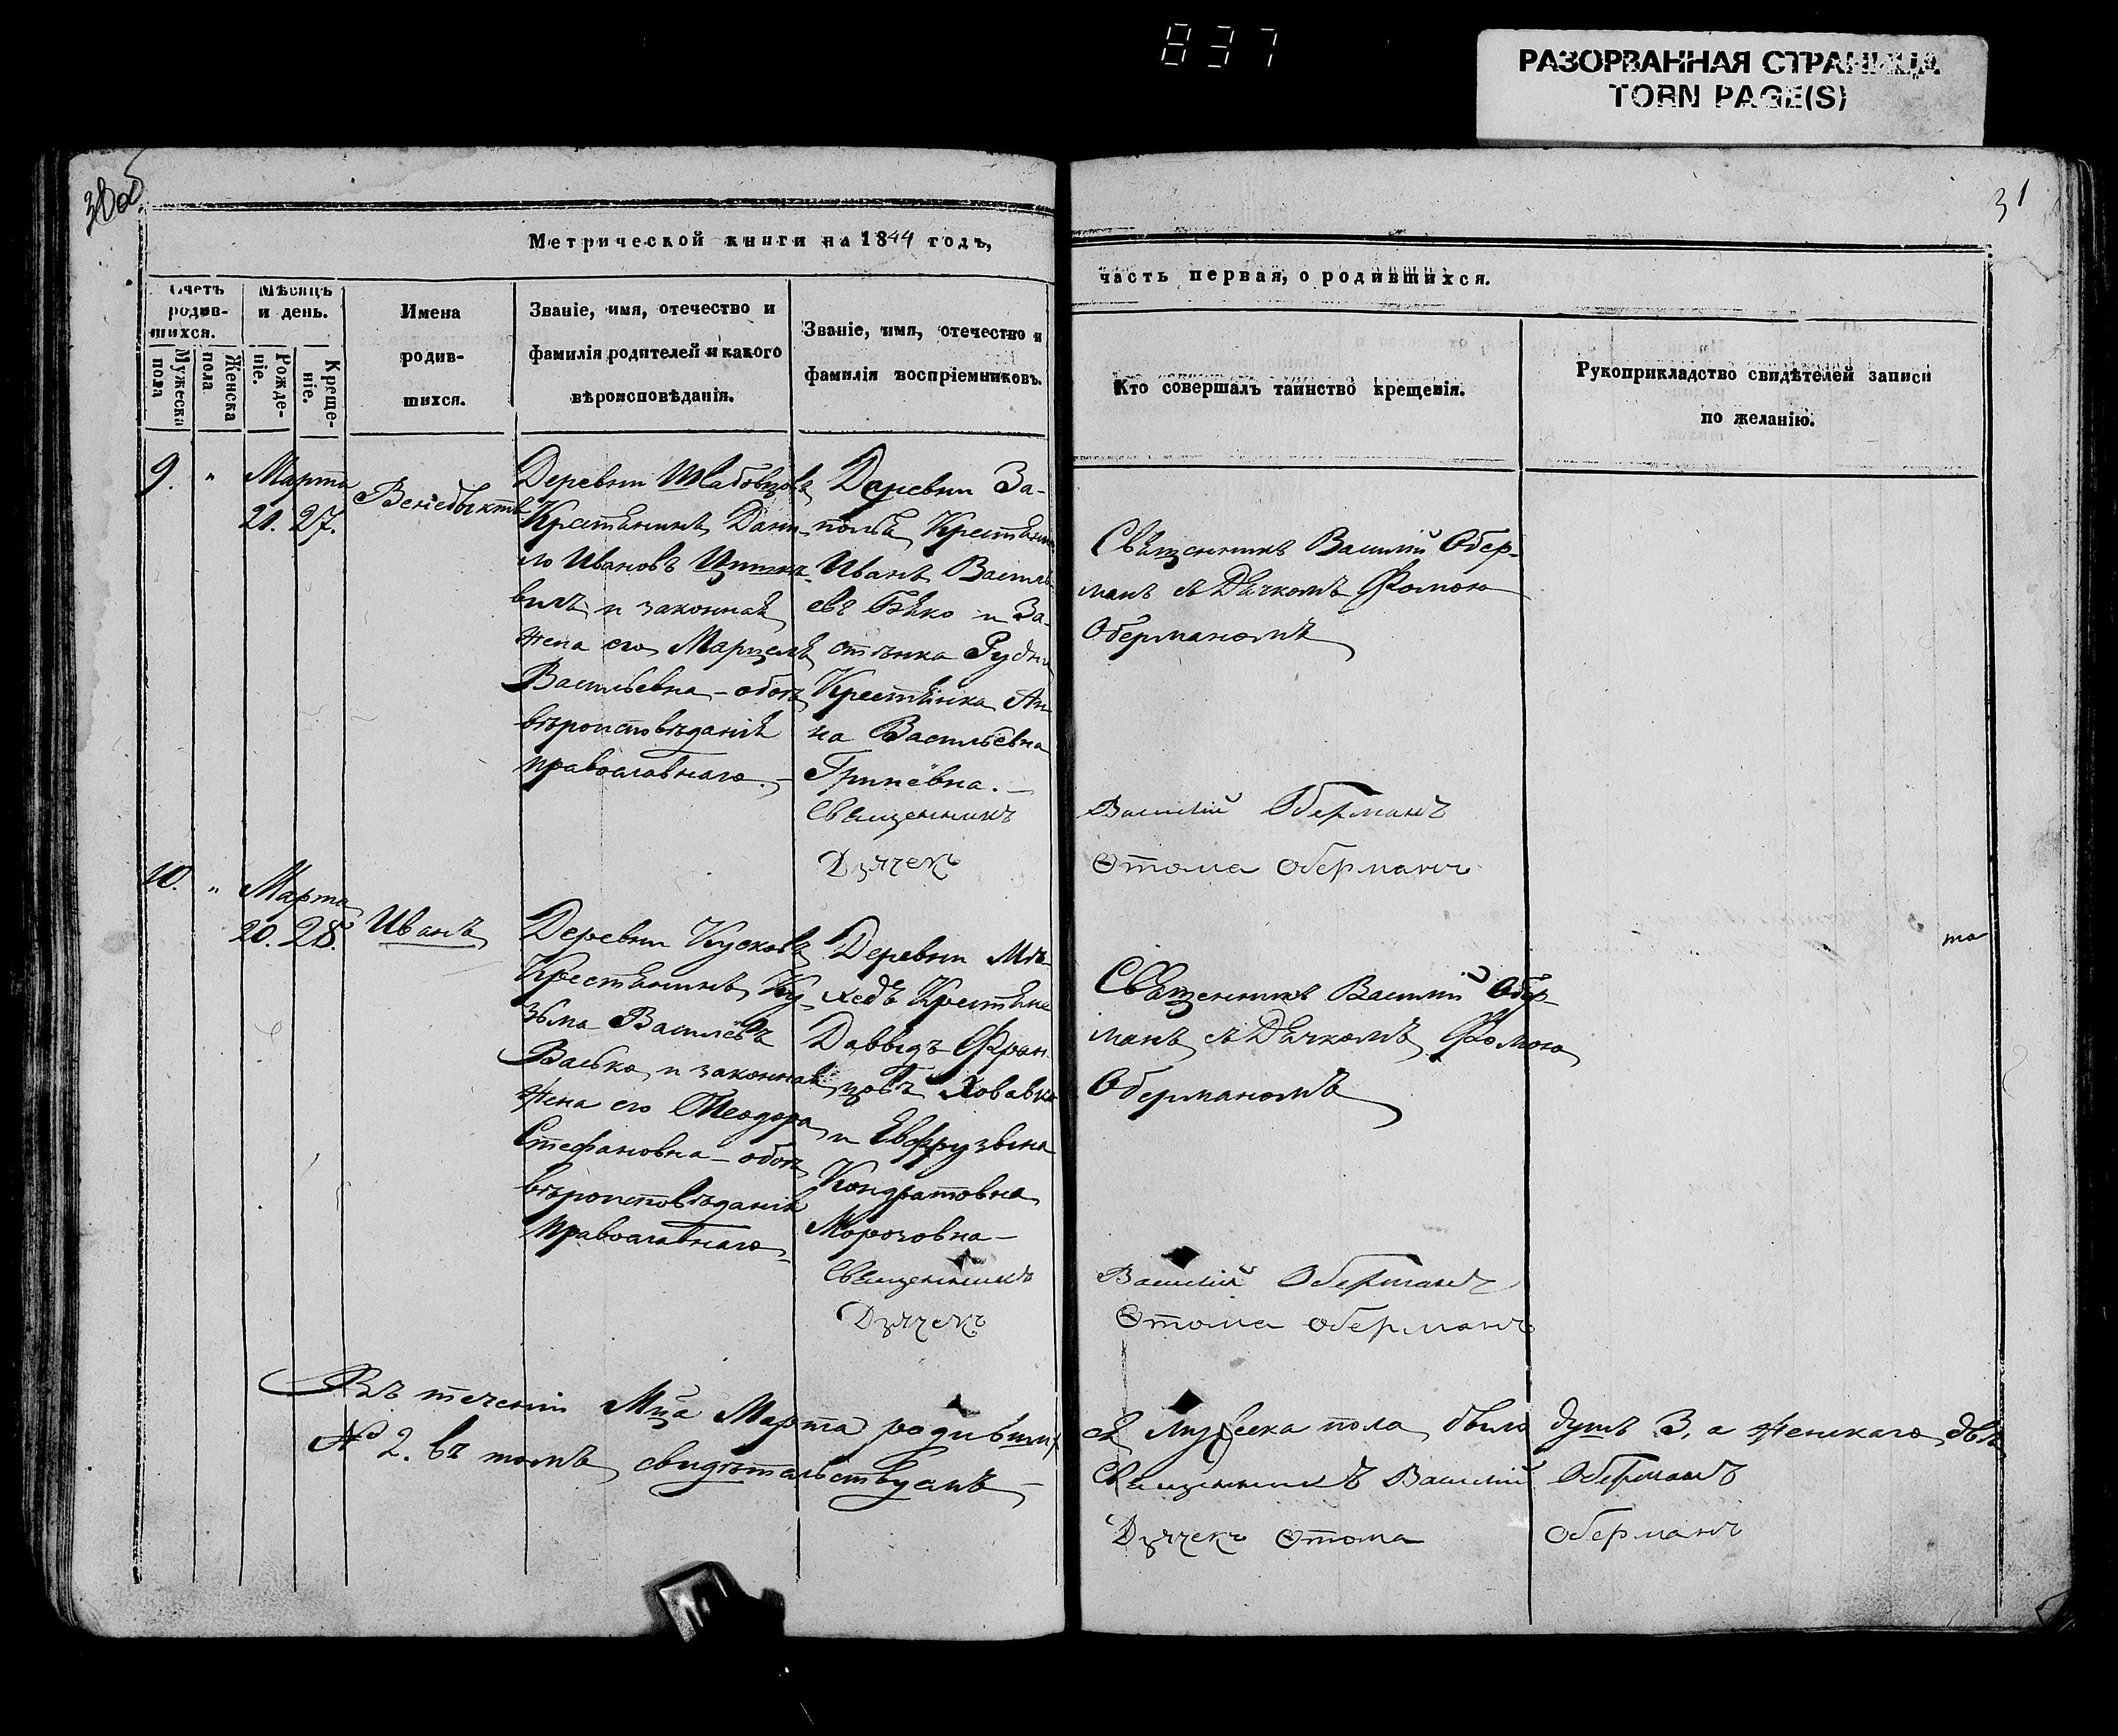 837
РАЗОРВАННАЯ СТРАНИЦА
TORN PAGE(S)
31
Метрической книги на 1844 годъ,
часть первая, о родившихся.
Счетъ родив-шихся.
Мужеска пола
Женска пола
Мѣсяцъ и день.
Рожде-ніе.
Креще-ніе.
Имена
родив-
шихся.
Званіе, имя, отечество и
фамилія родителей и какого
вѣроисповѣданія.
Званіе, имя, отечество и
фамилія воспріемниковъ.
Кто совершалъ таинство крещенія.
Рукоприкладство свидѣтелей записи
по желанію.
9. " Марта
21. 27.
Венедыктъ
Деревни
Крестьянинъ Дани-
ло Ивановъ
вичъ и законная
жена его Марцеля
Васильевна - обоя
вѣроисповѣданія
православнаго. -
Деревни За-
полья Крестьянинъ
Иванъ Василь-
евъ Бѣко и За-
стѣнка Рудни
Крестьянка Ан-
на Васильевна
Гринёвна. -
Священникъ
Дьячекъ
Священникъ Василій Обер-
манъ съ Дьячкомъ Фомою
Оберманомъ
Василій Оберманъ
Ѳома Оберманъ
10. " Марта
20. 28.
Иванъ
Деревни
Крестьянинъ Ку-
зьма Васильевъ
Васько и законная
жена его Ѳеодора
Стефановна - обоя
вѣроисповѣданія
православнаго
Деревни
Крестьяне
Давыдъ Фран-
цовъ
и Евфрузына
Кондратовна
Морозовна -
Священникъ
Дьячекъ
Священникъ Василій Обер-
манъ съ Дьячкомъ Фомою
Оберманомъ
Василій Оберманъ
Ѳома Оберманъ
Въ теченіи Мца Марта родивших
ся Мужеска пола было душъ 3, а женскаго двѣ
№ 2. въ томъ свидѣтельствуемъ -
Священникъ Василій Оберманъ
Дьячекъ Ѳома Оберманъ